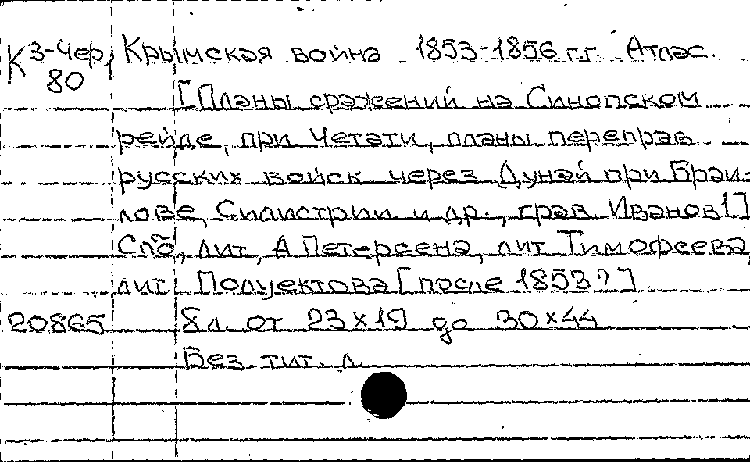 К 3-Чер. Крымская война 1853-1856 гг. Атлас.
80
[Планы сражений на Синопском
рейде, при Четати, планы переправ
русских войск через Дунай при Браи-
лове, Силистрии и др., грав. Иванов 1]
Спб, лит. А. Петерсена, лит. Тимофеева,
лит. Полуектова [после 1853?]
20865 8 л. от 23×19 до 30×44
Без тит. л.